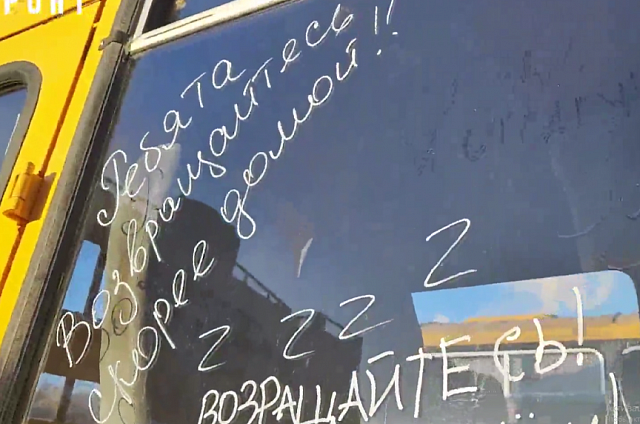 Ребята
Возвращайтесь
скорее домой!!
Z Z Z Z
ВОЗРАЩАЙТЕСЬ!